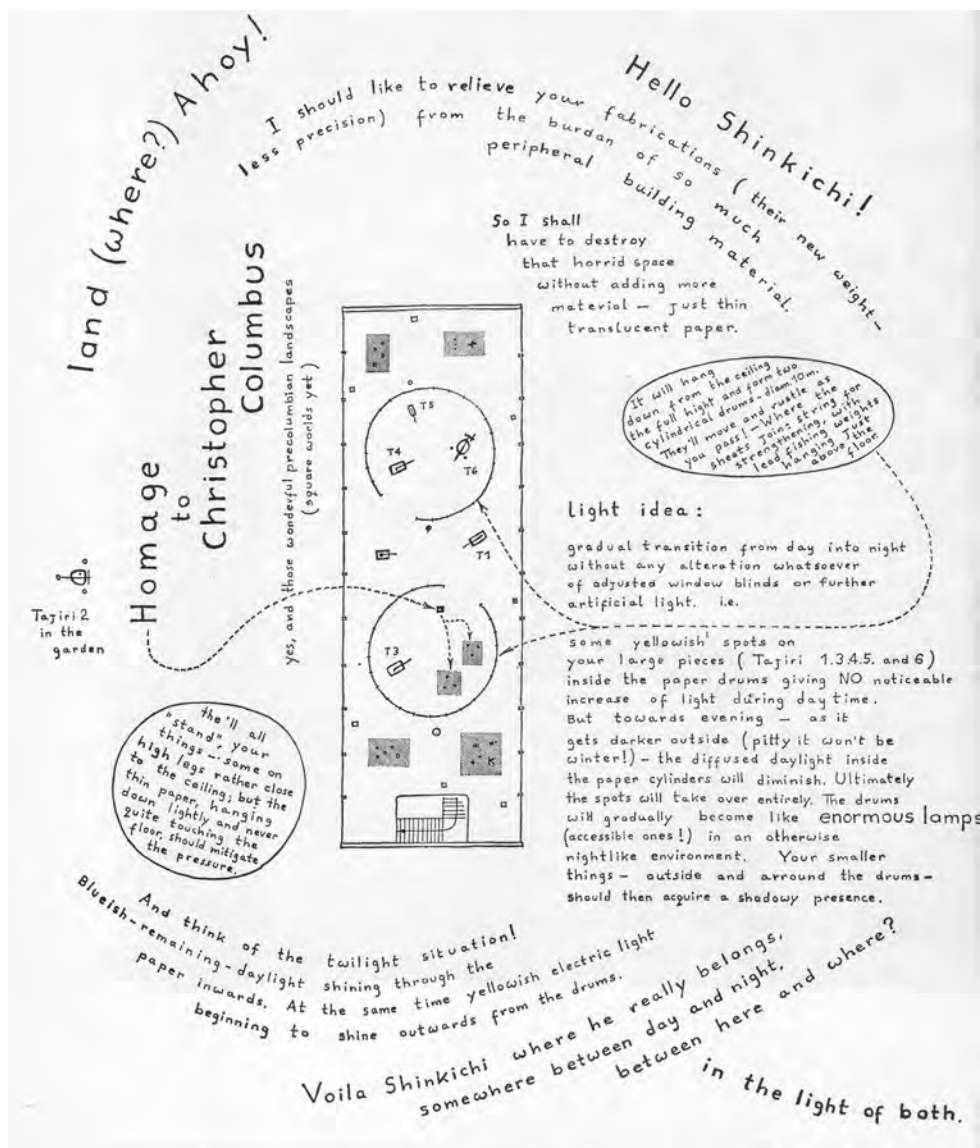 land (where?) Ahoy!
Hello Shinkichi!
I should like to relieve your fabrications (their new weight-
less precision) from the burdan of so much
peripheral building material.
So I shall
have to destroy
that horrid space
without adding more
material — just thin
translucent paper.
Homage
to
Christopher
Columbus
yes, and those wonderful precolumbian landscapes
(square worlds yet)
It will hang
down from the ceiling
the full hight and form two
cylindrical drums - diam. 10 m.
They'll move and rustle as
you pass! — Where the
sheets join: string for
strengthening, with
lead fishing weights
hanging just
above the
floor.
T5
T4
T6
T1
T3
K
Tajiri 2
in the
garden
light idea:
gradual transition from day into night
without any alteration whatsoever
of adjusted window blinds or further
artificial light. i.e.
some yellowish' spots on
your large pieces (Tajiri 1.3.4.5. and 6)
inside the paper drums giving NO noticeable
increase of light during day time.
But towards evening — as it
gets darker outside (pitty it won't be
winter!) — the diffused daylight inside
the paper cylinders will diminish. Ultimately
the spots will take over entirely. The drums
will gradually become like enormous lamps
(accessible ones!) in an otherwise
nightlike environment. Your smaller
things — outside and arround the drums —
should then acquire a shadowy presence.
the'll all
"stand", your
things — some on
high legs rather close
to the ceiling; but the
thin paper, hanging
down lightly and never
quite touching the
floor, should mitigate
the pressure.
And think of the twilight situation!
Blueish-remaining-daylight shining through the
paper inwards. At the same time yellowish electric light
beginning to shine outwards from the drums.
Voila Shinkichi where he really belongs,
somewhere between day and night,
between here and where?
in the light of both.